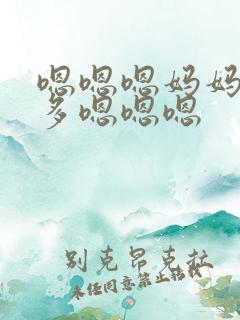 嗯嗯嗯妈妈
多嗯嗯嗯
别克昂克拉
未经同意禁止转载